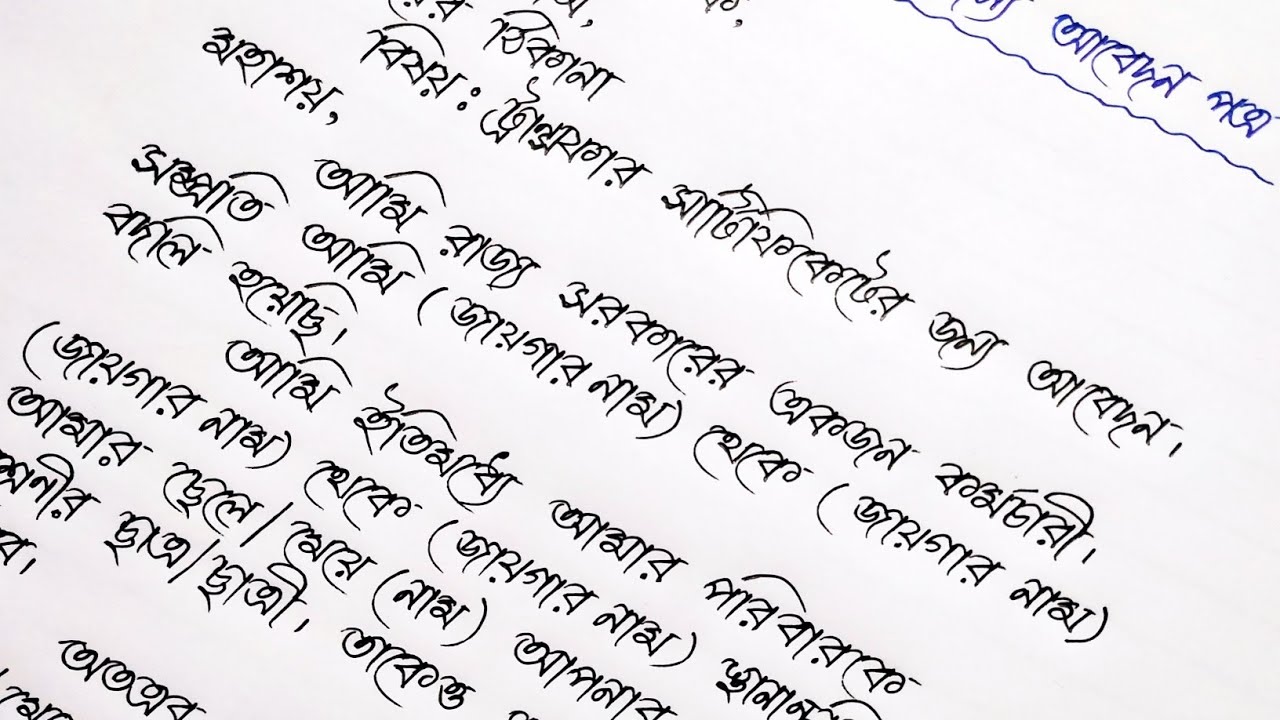 আবেদন পত্র
ঠিকানা
বিষয়: ট্রান্সফার সার্টিফিকেটের জন্য আবেদন।
মহাশয়,
আমি রাজ্য সরকারের একজন কর্মচারী।
সম্প্রতি আমি (জায়গার নাম) থেকে (জায়গার নাম)
বদলি হয়েছি।
আমি ইতিমধ্যে আমার পরিবারকে
(জায়গার নাম) থেকে (জায়গার নাম)
আমার ছেলে/মেয়ে (নাম) আপনার
ছাত্র/ছাত্রী। তাকেও
অতএব